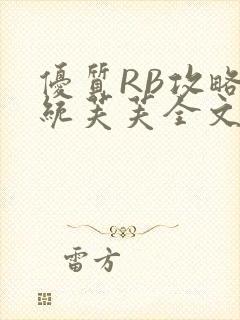 優質RB攻略
統芙芙全文
雷方